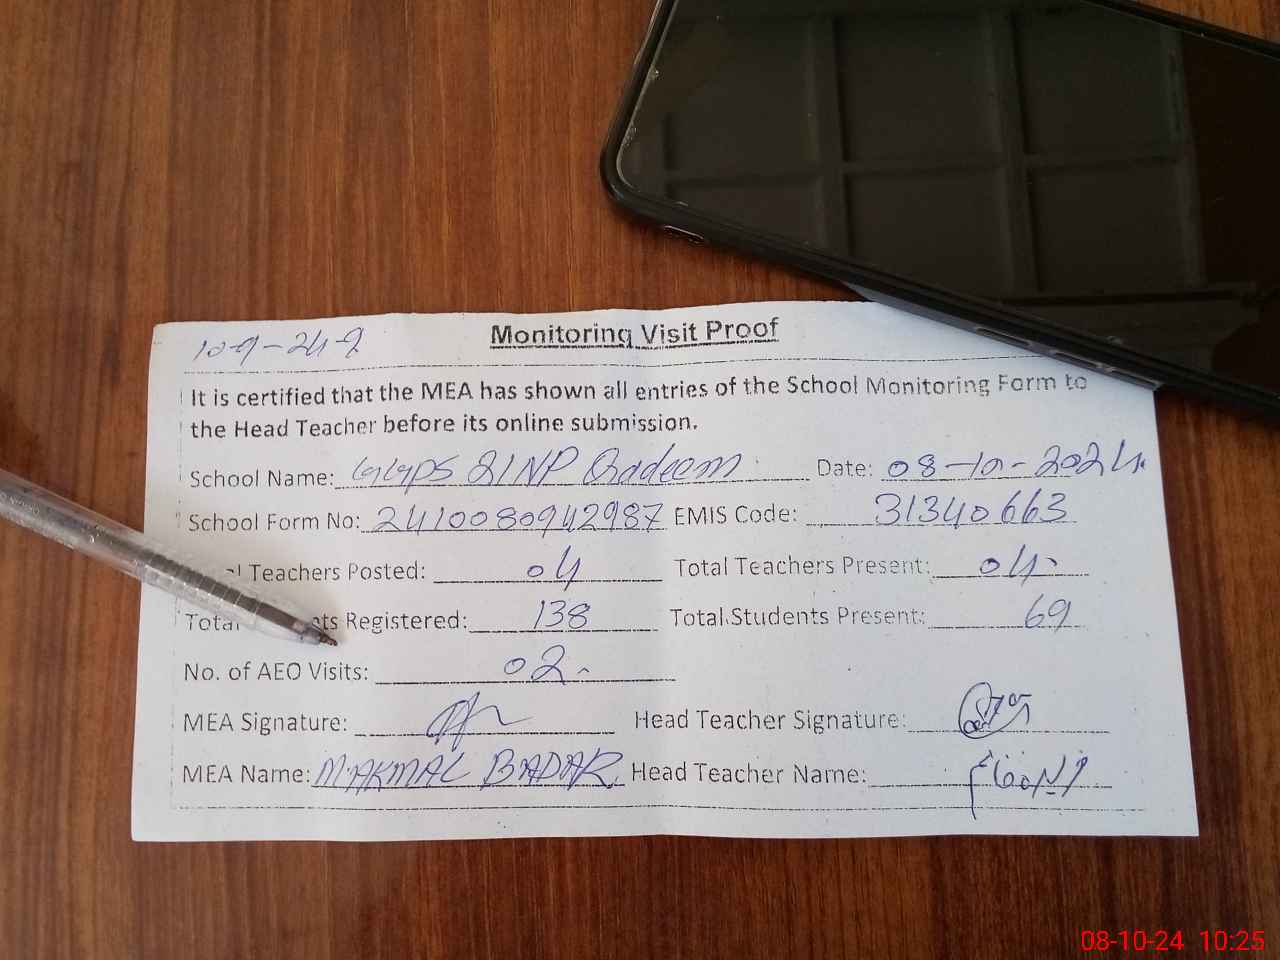 10-9-24-2
Monitoring Visit Proof
It is certified that the MEA has shown all entries of the School Monitoring Form to
the Head Teacher before its online submission.
School Name: GGPS 21NP Qadeem Date: 08-10-2024.
School Form No: 2410080942987 EMIS Code: 31340663
Teachers Posted: 04 Total Teachers Present: 04.
Total Registered: 138 Total Students Present: 69
No. of AEO Visits: 02.
MEA Signature: Head Teacher Signature:
MEA Name: M.AKMAL BADAR Head Teacher Name:
08-10-24 10:25